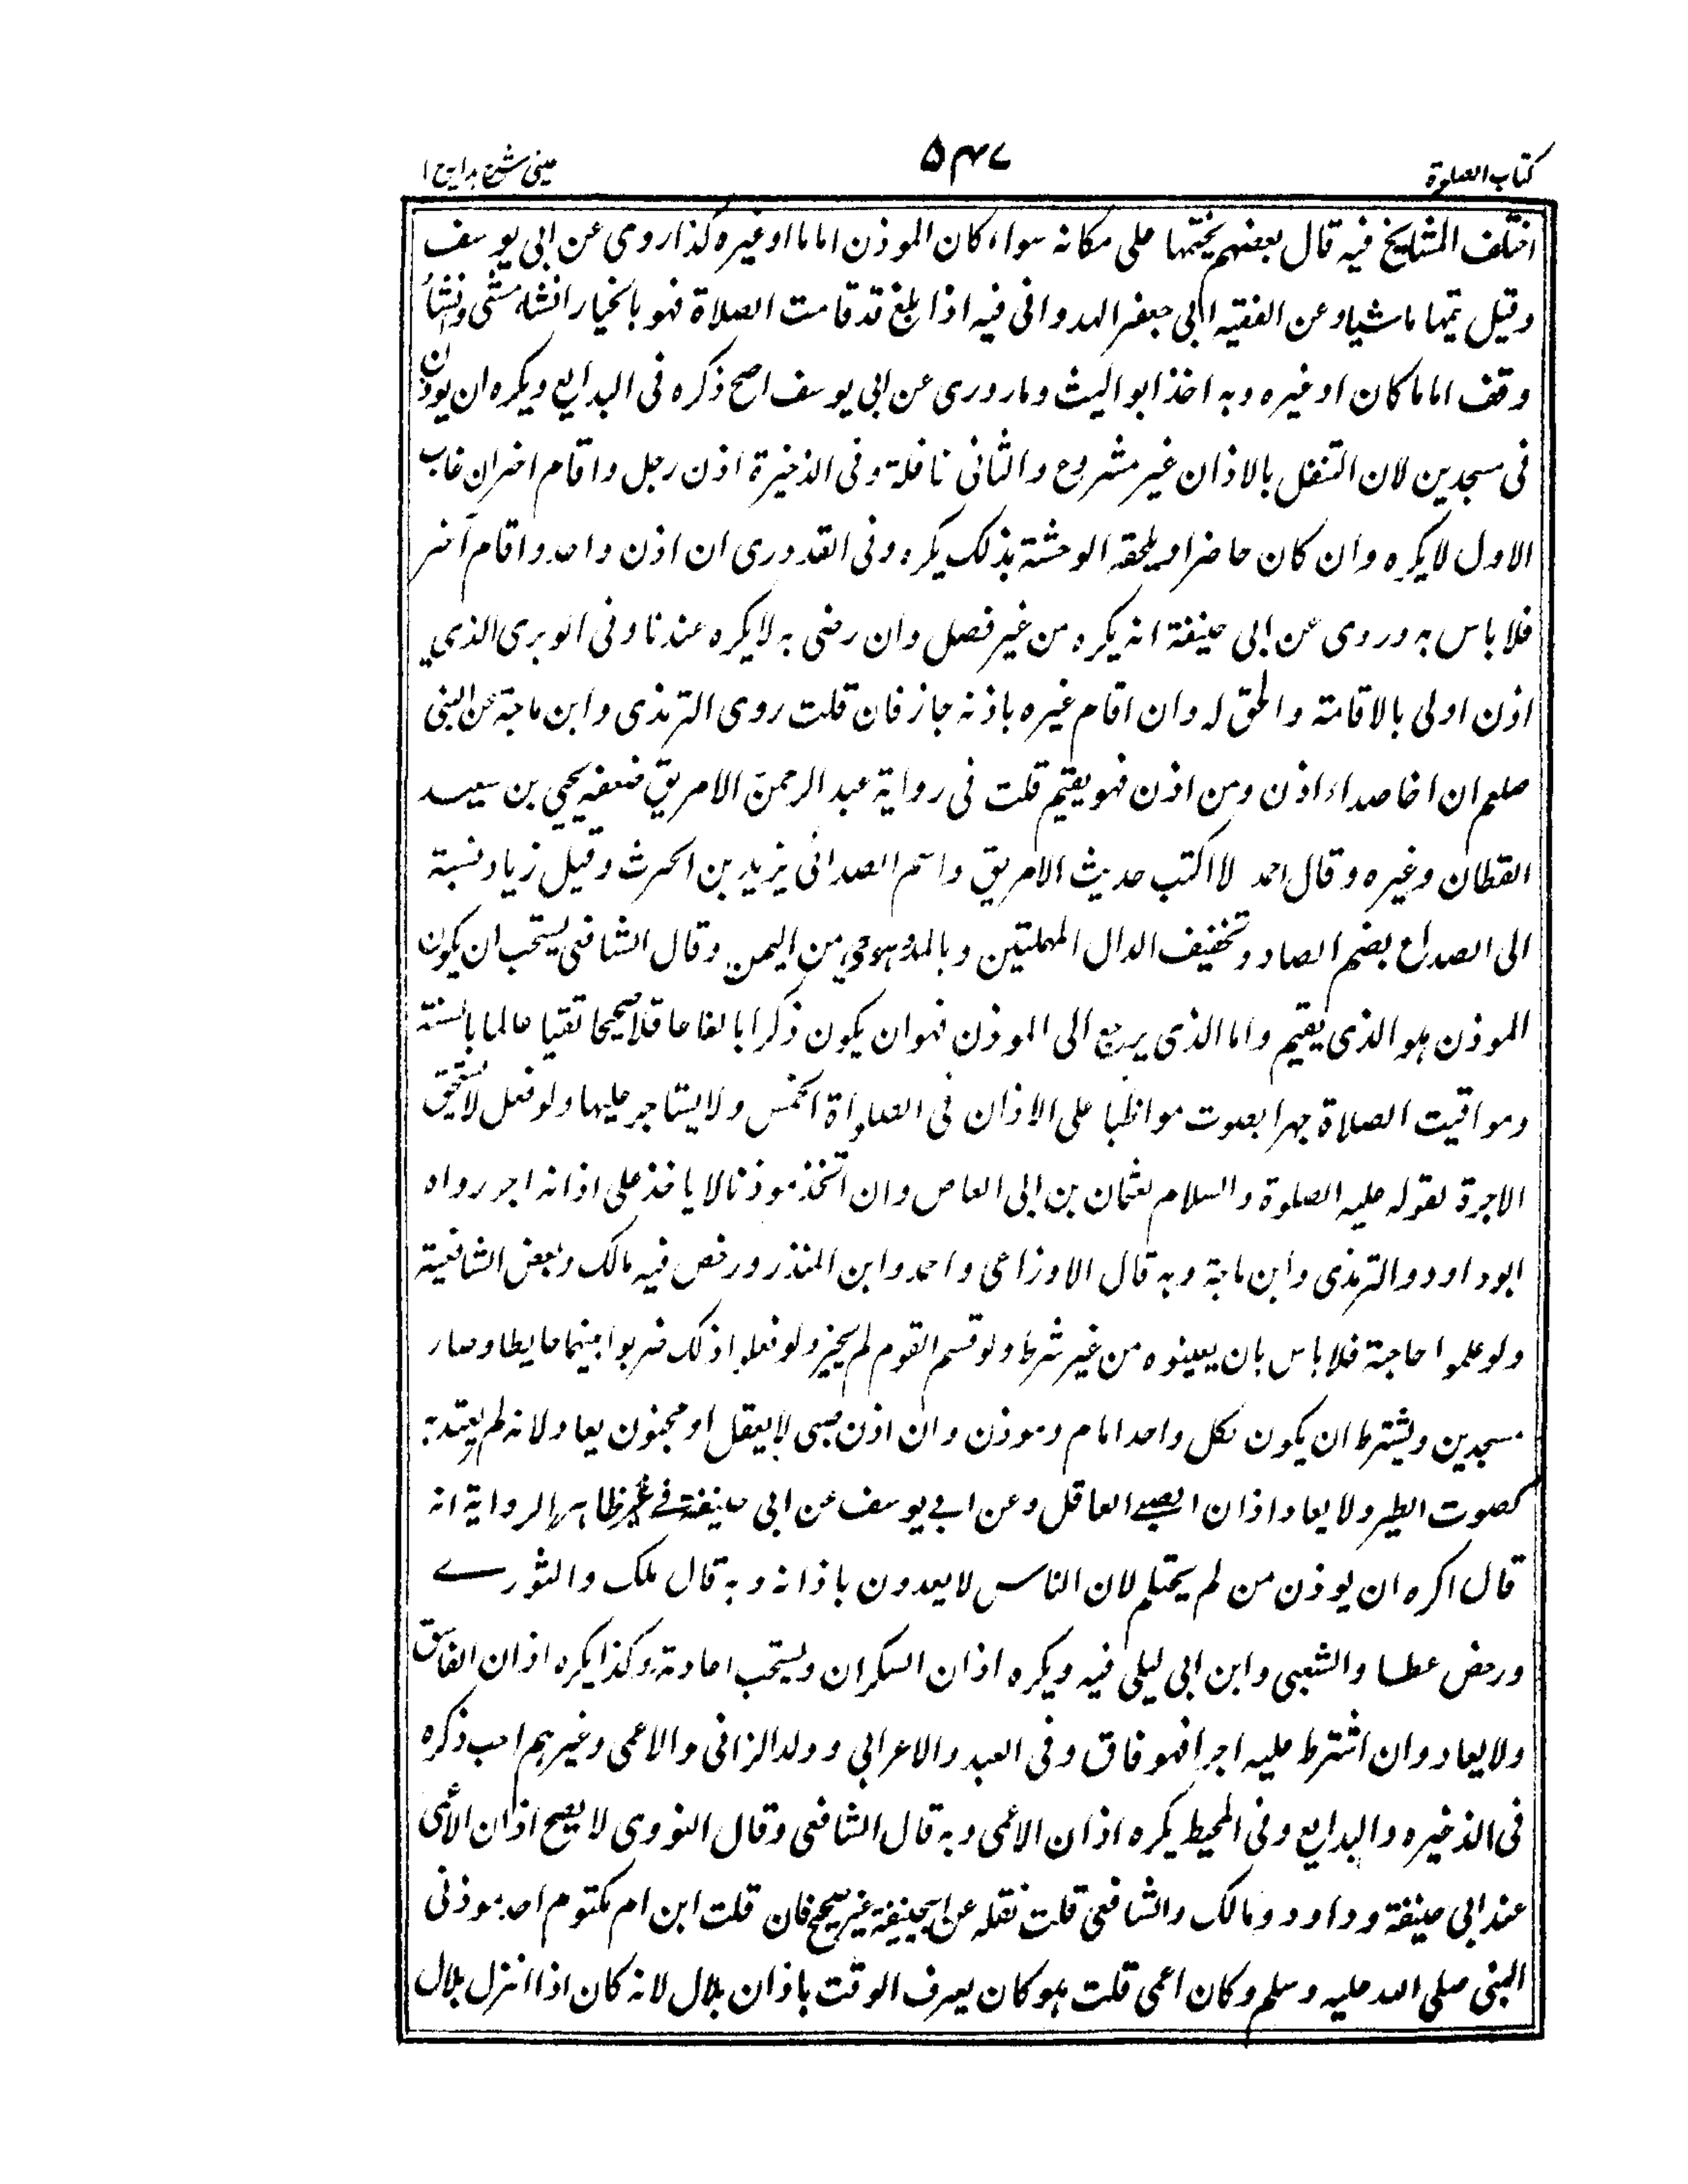 كتاب الصلوة
۵۴۷
عینی شرح ہدایہ ج ۱
اختلف المشايخ فيه قال بعضهم يختمها على مكانه سواء كان الموذن اماما او غيره كذا روى عن ابى يوسف
وقيل يتمها ماشيا وعن الفقيه ابى جعفر الهدوانى فيه اذا بلغ قد قامت الصلاة فهو بالخيار انشاء مشى وانشاء
وقف اماما كان او غيره وبه اخذ ابو اليث وما روى عن ابى يوسف اصح ذكره فى البدايع ويكره ان يوذن
فى مسجدين لان التنفل بالاذان غير مشروع والثانى نافلة وفى الذخيرة اذن رجل واقام اخر ان غاب
الاول لا يكره وان كان حاضرا ويلحقه الوحشة بذلك يكره وفى القدورى ان اذن واحد واقام آخر
فلا باس به وروى عن ابى حنيفة انه يكره من غير فصل وان رضى به لا يكره عندنا وفى الوبرى الذي
اذن اولى بالاقامة والحق له وان اقام غيره باذنه جاز فان قلت روى الترمذى وابن ماجة عن النبى
صلعم ان اخا صداء اذن ومن اذن فهو يقيم قلت فى رواية عبد الرحمن الامريقى ضعفه يحيي بن سعيد
القطان وغيره وقال احمد لا اكتب حديث الامريقى واسم الصدائى يزيد بن الحرث وقيل زياد نسبة
الى الصداع بضم الصاد وتخفيف الدال المهملتين وبالمد وهو حي من اليمن وقال الشافعى يستحب ان يكون
الموذن هو الذى يقيم واما الذى يرجع الى الموذن فهو ان يكون ذكرا بالغا عاقلا صحيحا تقيا عالما بالسنة
ومواقيت الصلاة جهرا بصوت مواظبا على الاذان فى الصلواة الخمس ولا يستاجر عليها ولو فعل لا يستحق
الاجرة لقوله عليه الصلوة والسلام لعثمان بن ابى العاص وان اتخذ موذنا لا ياخذ على اذانه اجر رواه
ابو داود والترمذى وابن ماجة وبه قال الاوزاعى واحمد وابن المنذر ورخص فيه مالك وبعض الشافعية
ولو علموا حاجة فلا باس بان يعينوه من غير شرط ولو قسم القوم لم يجز ولو فعلوا ذلك ضربوا بينهما حايطا وصار
مسجدين ويشترط ان يكون لكل واحد امام وموذن وان اذن صبى لا يعقل او مجنون يعاد لانه لم يعتد به
كصوت الطير ولا يعاد اذان الصبے العاقل وعن ابے يوسف عن ابى حنيفة فے غير ظاهر الرواية انه
قال اكره ان يوذن من لم يحتلم لان الناس لا يعدون باذانه وبه قال ملك والثورے
ورخص عطا والشعبى وابن ابى ليلى فيه ويكره اذان السكران ويستحب اعادته وكذا يكره اذان الفاسق
ولا يعاد وان اشترط عليه اجرا فهو فاق وفى العبد والاعرابى وولد الزانى والاعمى وغيرهم احب ذكره
فى الذخيره والبدايع وفى المحيط يكره اذان الاعمى وبه قال الشافعى وقال النووى لا يصح اذان الاعمى
عند ابى حنيفة وداود ومالك والشافعى قلت نقله عن ابيحنيفة غير صحيح فان قلت ابن ام مكتوم احد موذنى
النبى صلى الله عليه وسلم وكان اعمى قلت هو كان يعرف الوقت باذان بلال لانه كان اذا انزل بلال